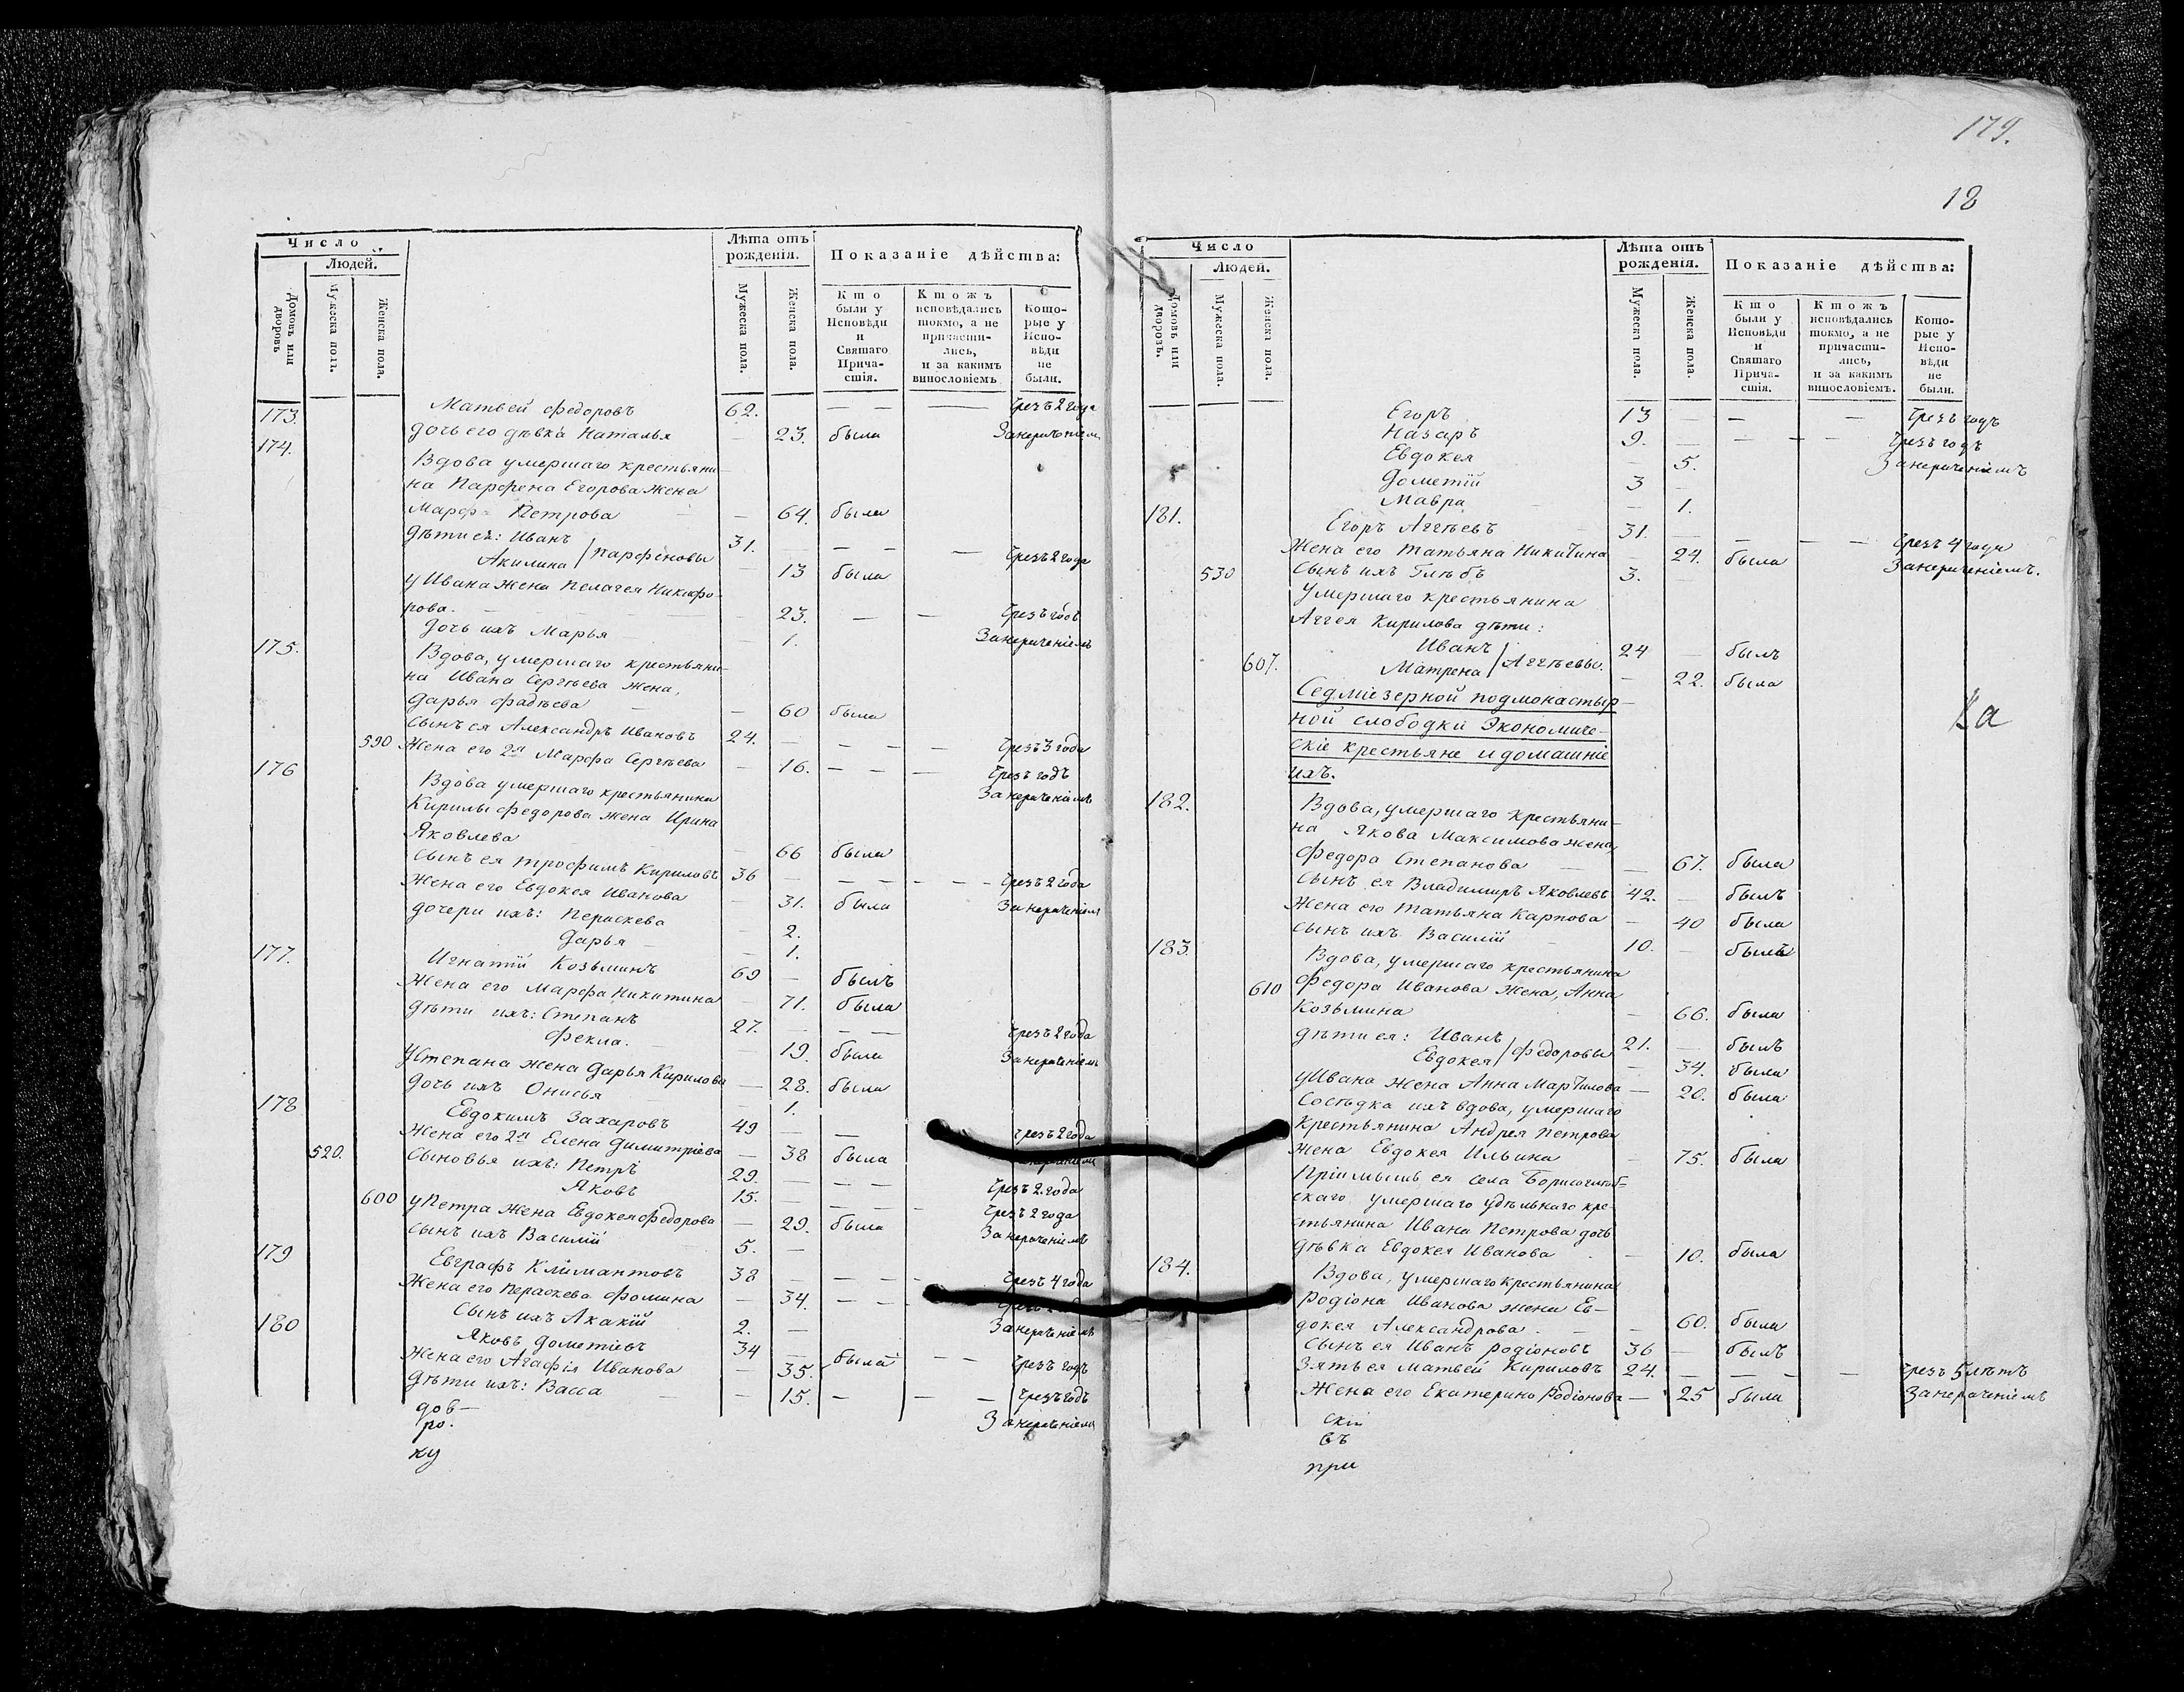 Число
Людей.
Домовъ или дворовъ
Мужеска пола.
Женска пола.
Лѣта отъ рожденія.
Мужеска пола.
Женска пола.
Показаніе дѣйства:
Кто были у Исповѣди и Святаго Прича-стія.
Ктожъ исповѣдались токмо, а не причасти-лись, и за какимъ винословіемъ
Кото-рые у Испо-вѣди не были.
173. Матвей Федоровъ 62. — — — чрезъ 2 года
дочь его дѣвка Наталья — 23. была Занераченіемъ
174. Вдова умершаго крестьяни-
на Парфена Егорова жена
Марфа Петрова — 64. была
дѣти ея: Иванъ 31. — — — чрезъ 2 года
Акилина / Парфеновы — 13 была
у Ивана жена Пелагея Никифо-
рова. — 23. — — чрезъ годъ
дочь ихъ Марья — 1. Занераченіемъ
175. Вдова, умершаго крестьяни-
на Ивана Сергѣева жена,
Дарья Фадѣева — 60 была
сынъ ея Александръ Ивановъ 24. — — — — чрезъ 3 года
590 Жена его 2я Марфа Сергѣева — 16. — — — чрезъ годъ
Занераченіемъ
176 Вдова умершаго крестьянина
Кирилы Федорова жена Ирина
Яковлева — 66 была
сынъ ея Трофимъ Кириловъ 36 — — — — чрезъ 2 года
Жена его Евдокея Иванова — 31. была Занераченіемъ
дочери ихъ: Пераскева — 2.
Дарья — 1.
177. Игнатій Козьминъ 69 — былъ
Жена его Марфа Никитина — 71. была
дѣти ихъ: Степанъ 27. — — — чрезъ 2 года
Фекла. — 19. была Занераченіемъ
у Степана жена Дарья Кирилова — 28. была
дочь ихъ Онисья — 1.
178 Евдокимъ Захаровъ 49 — — чрезъ 2 года
Жена его 2я Елена Димитріева — 38 была
520. Сыновья ихъ: Петръ 29. — — — чрезъ 2 года
Яковъ 15. — — — — чрезъ 2 года
600 у Петра жена Евдокея Федорова — 29. была Занераченіемъ
сынъ ихъ Василій 5. —
179 Евграфъ Климантовъ 38 — — — — чрезъ 4 года
Жена его Пераскева Фомина — 34. — —
Сынъ ихъ Акакій 2. — Занераченіемъ
180 Яковъ Дометіевъ 34 — — — чрезъ годъ
Жена его Агафія Иванова — 35. была
дѣти ихъ: Васса — 15. — — — чрезъ годъ
Занераченіемъ
дов-
ро.
ку
179.
18
Число
Людей.
Домовъ или дворовъ.
Мужеска пола.
Женска пола.
Лѣта отъ рожденія.
Мужеска пола.
Женска пола.
Показаніе дѣйства:
Кто были у Исповѣди и Святаго Прича-стія.
Ктожъ исповѣдались токмо, а не причасти-лись, и за какимъ винословіемъ.
Кото-рые у Испо-вѣди не были.
Егоръ 13 — — — чрезъ годъ
Назаръ 9. — — — чрезъ годъ
Евдокея — 5. Занераченіемъ
Дометій 3 —
Мавра — 1.
181. Егоръ Аггѣевъ 31. — — — — чрезъ 4 года
Жена его Татьяна Никитина — 24. была Занераченіемъ.
530 Сынъ ихъ Глѣбъ 3. —
Умершаго крестьянина
Аггея Кирилова дѣти:
Иванъ 24 — былъ
607. Матрена / Аггѣевы. — 22. была
Седміезерной подмонастыр-
ной слободки Экономиче-
скіе крестьяне и домашніе
ихъ.
182. Вдова, умершаго крестьяни-
на Якова Максимова жена,
Федора Степанова — 67. была
Сынъ ея Владимиръ Яковлевъ 42. — былъ
Жена его Татьяна Карпова — 40 была
сынъ ихъ Василій 10. — былъ
183. Вдова, умершаго крестьянина
610 Федора Иванова жена, Анна
Козьмина — 66. была
дѣти ея: Иванъ 21. — былъ
Евдокея / Федоровы — 34. была
у Ивана жена Анна Мартилова — 20. была
Сосѣдка ихъ вдова, умершаго
Крестьянина Андрея Петрова
жена Евдокея Ильина — 75. была
Пріимышъ ея села Борисоглѣб-
скаго умершаго удѣльнаго кре-
стьянина Ивана Петрова дочь
дѣвка Евдокея Иванова — 10. была
184. Вдова, умершаго крестьянина
Родіона Иванова жена Ев-
докея Александрова. — 60. была
Сынъ ея Иванъ Родіоновъ 36 — былъ
Зять ея Матвей Кириловъ 24. — — — — чрезъ 5 лѣтъ
Жена его Екатерина Родіонова — 25 была Занераченіемъ
скій
въ
при